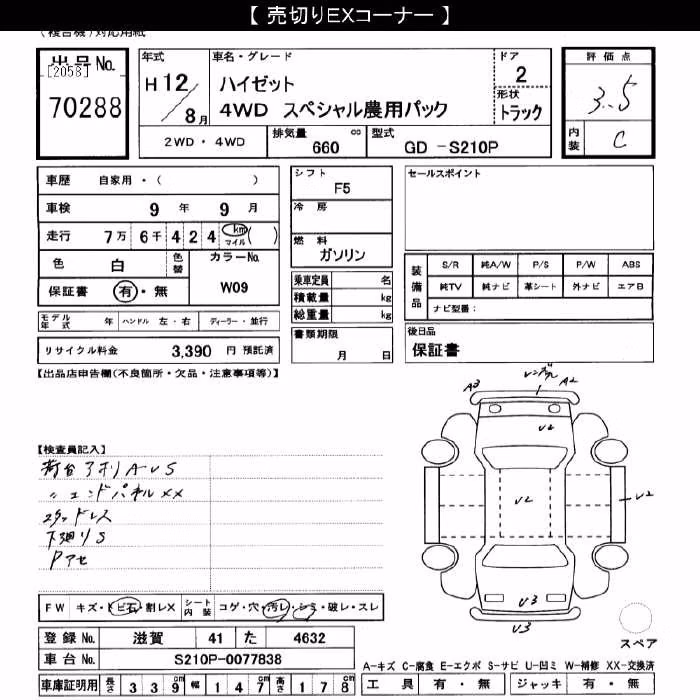 【 売切りEXコーナー 】
(複合機)対応用紙
出品No.
[2058]
70288
年式
H 12/8月
車名・グレード
ハイゼット
4WD スペシャル農用パック
ドア
2
形状
トラック
評価点
3.5
内装
C
2WD・4WD
排気量
cc
660
型式
GD -S210P
車歴 自家用・( )
車検 9 年 9 月
走行 7万 6千 4 2 4 km マイル ( )
色 白 色替 カラーNo.
W09
保証書 有・無
シフト
F5
冷房
燃料
ガソリン
セールスポイント
乗車定員 名
積載量 kg
総重量 kg
装備品
S/R 純A/W P/S P/W ABS
純TV 純ナビ 革シート 外ナビ エアB
ナビ型番:
モデル年式 年 ハンドル 左・右 ディーラー・並行
リサイクル料金 3,390 円 預託済
書類期限
月 日
後日品
保証書
【出品店申告欄(不良箇所・欠品・注意事項等)】
A3 A2
U2
U2
U2
U3
U3
【検査員記入】
荷台アオリAUS
〃 エンドパネルXX
スタッドレス
下廻りS
Pアセ
FW キズ・トビ石・割レX シート内装 コゲ・穴・汚レ・シミ・破レ・スレ
登録No. 滋賀 41 た 4632
車台No. S210P-0077838
スペア
A-キズ C-腐食 E-エクボ S-サビ U-凹ミ W-補修 XX-交換済
車庫証明用 長さ 3 3 9 cm 幅 1 4 7 cm 高さ 1 7 8 cm
工具 有・無 ジャッキ 有・無